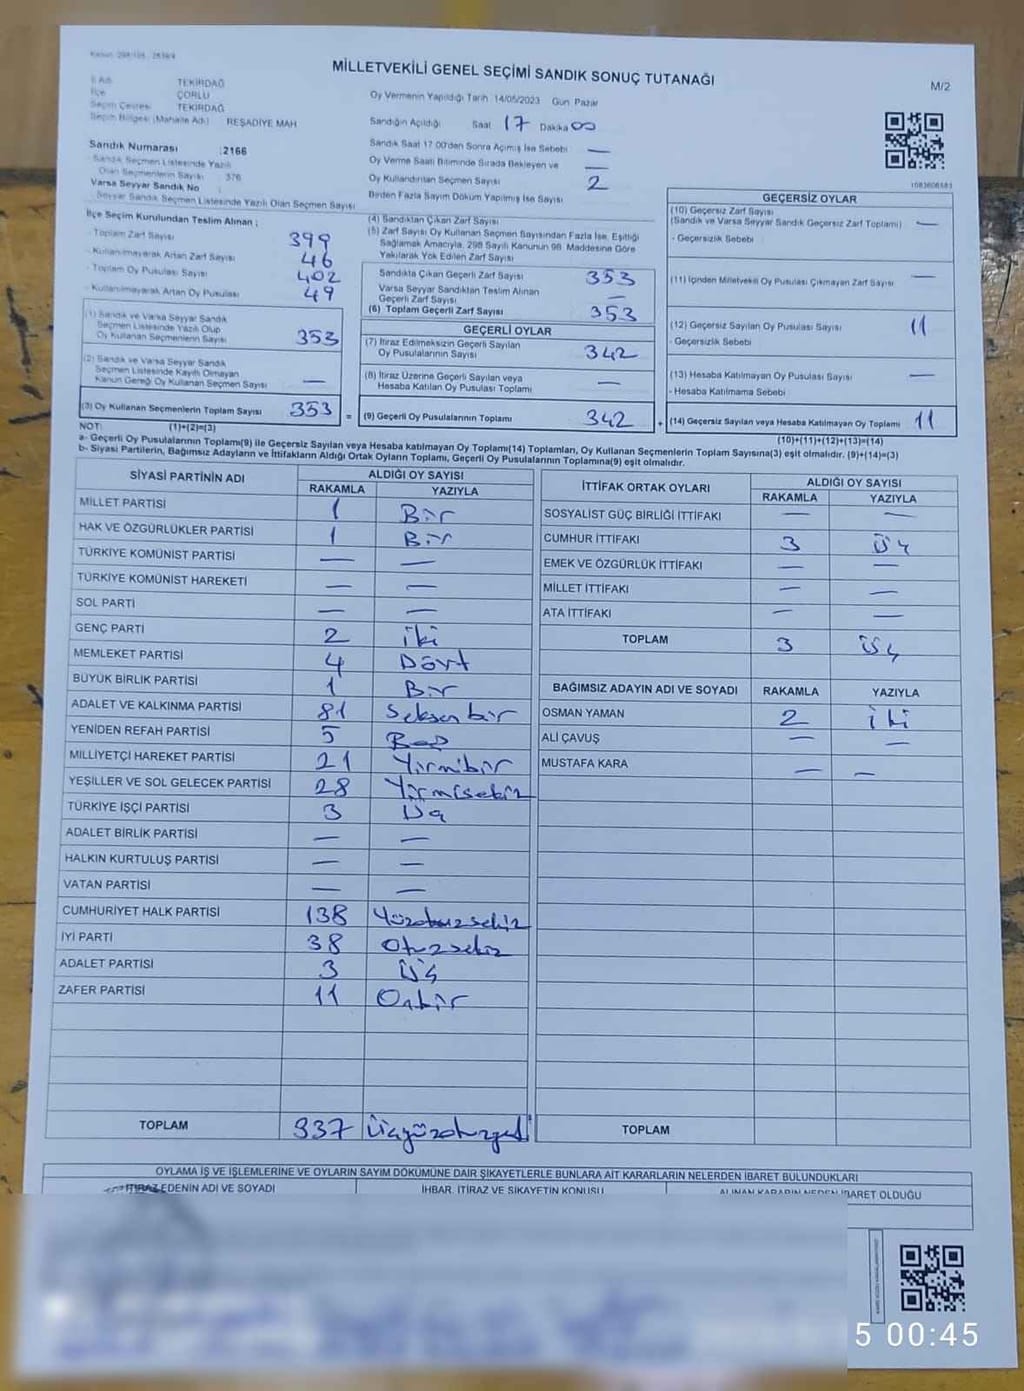 MİLLETVEKİLİ GENEL SEÇİMİ SANDIK SONUÇ TUTANAĞI
M/2
İl Adı TEKİRDAĞ
İlçe ÇORLU
Seçim Çevresi TEKİRDAĞ
Seçim Bölgesi (Mahalle Adı) REŞADİYE MAH
Oy Vermenin Yapıldığı Tarih 14/05/2023 Gün Pazar
Sandığın Açıldığı Saat 17 Dakika 00
Sandık Numarası : 2166
Sandık Seçmen Listesinde Yazılı
Olan Seçmenlerin Sayısı : 376
Varsa Seyyar Sandık No :
Seyyar Sandık Seçmen Listesinde Yazılı Olan Seçmen Sayısı
Sandık Saat 17.00'den Sonra Açılmış İse Sebebi —
Oy Verme Saati Bitiminde Sırada Bekleyen ve —
Oy Kullandırılan Seçmen Sayısı 2
Birden Fazla Sayım Döküm Yapılmış İse Sayısı
İlçe Seçim Kurulundan Teslim Alınan ;
- Toplam Zarf Sayısı 399
- Kullanılmayarak Artan Zarf Sayısı 46
- Toplam Oy Pusulası Sayısı 402
- Kullanılmayarak Artan Oy Pusulası 49
(1) Sandık ve Varsa Seyyar Sandık
Seçmen Listesinde Yazılı Olup
Oy Kullanan Seçmenlerin Sayısı 353
(2) Sandık ve Varsa Seyyar Sandık
Seçmen Listesinde Kayıtlı Olmayan
Kanun Gereği Oy Kullanan Seçmen Sayısı —
(3) Oy Kullanan Seçmenlerin Toplam Sayısı 353 =
(4) Sandıktan Çıkan Zarf Sayısı
(5) Zarf Sayısı Oy Kullanan Seçmen Sayısından Fazla İse, Eşitliği
Sağlamak Amacıyla, 298 Sayılı Kanunun 98. Maddesine Göre
Yakılarak Yok Edilen Zarf Sayısı
Sandıkta Çıkan Geçerli Zarf Sayısı 353
Varsa Seyyar Sandıktan Teslim Alınan
Geçerli Zarf Sayısı —
(6) Toplam Geçerli Zarf Sayısı 353
GEÇERLİ OYLAR
(7) İtiraz Edilmeksizin Geçerli Sayılan
Oy Pusulalarının Sayısı 342
(8) İtiraz Üzerine Geçerli Sayılan veya
Hesaba Katılan Oy Pusulası Toplamı —
(9) Geçerli Oy Pusulalarının Toplamı 342 +
GEÇERSİZ OYLAR
(10) Geçersiz Zarf Sayısı
(Sandık ve Varsa Seyyar Sandık Geçersiz Zarf Toplamı) —
- Geçersizlik Sebebi
(11) İçinden Milletvekili Oy Pusulası Çıkmayan Zarf Sayısı —
(12) Geçersiz Sayılan Oy Pusulası Sayısı 11
- Geçersizlik Sebebi
(13) Hesaba Katılmayan Oy Pusulası Sayısı —
- Hesaba Katılmama Sebebi
(14) Geçersiz Sayılan veya Hesaba Katılmayan Oy Toplamı 11
NOT: (1)+(2)=(3) (10)+(11)+(12)+(13)=(14)
a- Geçerli Oy Pusulalarının Toplamı(9) ile Geçersiz Sayılan veya Hesaba katılmayan Oy Toplamı(14) Toplamları, Oy Kullanan Seçmenlerin Toplam Sayısına(3) eşit olmalıdır. (9)+(14)=(3)
b- Siyasi Partilerin, Bağımsız Adayların ve İttifakların Aldığı Ortak Oyların Toplamı, Geçerli Oy Pusulalarının Toplamına(9) eşit olmalıdır.
SİYASİ PARTİNİN ADI ALDIĞI OY SAYISI
RAKAMLA YAZIYLA
MİLLET PARTİSİ 1 Bir
HAK VE ÖZGÜRLÜKLER PARTİSİ 1 Bir
TÜRKİYE KOMÜNİST PARTİSİ — —
TÜRKİYE KOMÜNİST HAREKETİ — —
SOL PARTİ — —
GENÇ PARTİ 2 iki
MEMLEKET PARTİSİ 4 Dört
BÜYÜK BİRLİK PARTİSİ 1 Bir
ADALET VE KALKINMA PARTİSİ 81 Seksenbir
YENİDEN REFAH PARTİSİ 5 Beş
MİLLİYETÇİ HAREKET PARTİSİ 21 Yirmibir
YEŞİLLER VE SOL GELECEK PARTİSİ 28 Yirmisekiz
TÜRKİYE İŞÇİ PARTİSİ 3 Üç
ADALET BİRLİK PARTİSİ — —
HALKIN KURTULUŞ PARTİSİ — —
VATAN PARTİSİ — —
CUMHURİYET HALK PARTİSİ 138 Yüzotuzsekiz
İYİ PARTİ 38 Otuzsekiz
ADALET PARTİSİ 3 üç
ZAFER PARTİSİ 11 Onbir
TOPLAM 337 Üçyüzotuzyedi
İTTİFAK ORTAK OYLARI ALDIĞI OY SAYISI
RAKAMLA YAZIYLA
SOSYALİST GÜÇ BİRLİĞİ İTTİFAKI — —
CUMHUR İTTİFAKI 3 üç
EMEK VE ÖZGÜRLÜK İTTİFAKI — —
MİLLET İTTİFAKI — —
ATA İTTİFAKI — —
TOPLAM 3 üç
BAĞIMSIZ ADAYIN ADI VE SOYADI RAKAMLA YAZIYLA
OSMAN YAMAN 2 iki
ALİ ÇAVUŞ — —
MUSTAFA KARA — —
TOPLAM
OYLAMA İŞ VE İŞLEMLERİNE VE OYLARIN SAYIM DÖKÜMÜNE DAİR ŞİKAYETLERLE BUNLARA AİT KARARLARIN NELERDEN İBARET BULUNDUKLARI
İTİRAZ EDENİN ADI VE SOYADI İHBAR, İTİRAZ VE ŞİKAYETİN KONUSU ALINAN KARARIN NEDEN İBARET OLDUĞU
5 00:45